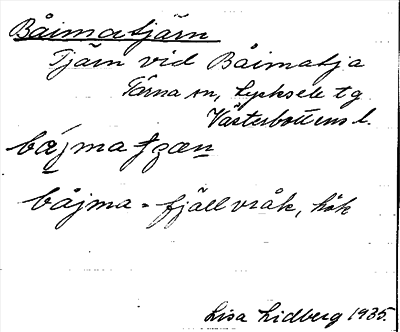 Båimatjärn
Tjärn vid Båimatja
Tärna sn, Lycksele tg
Västerbottens l.
båjma tjæn
båjma = fjällvråk, hök
Lisa Lidberg 1935.